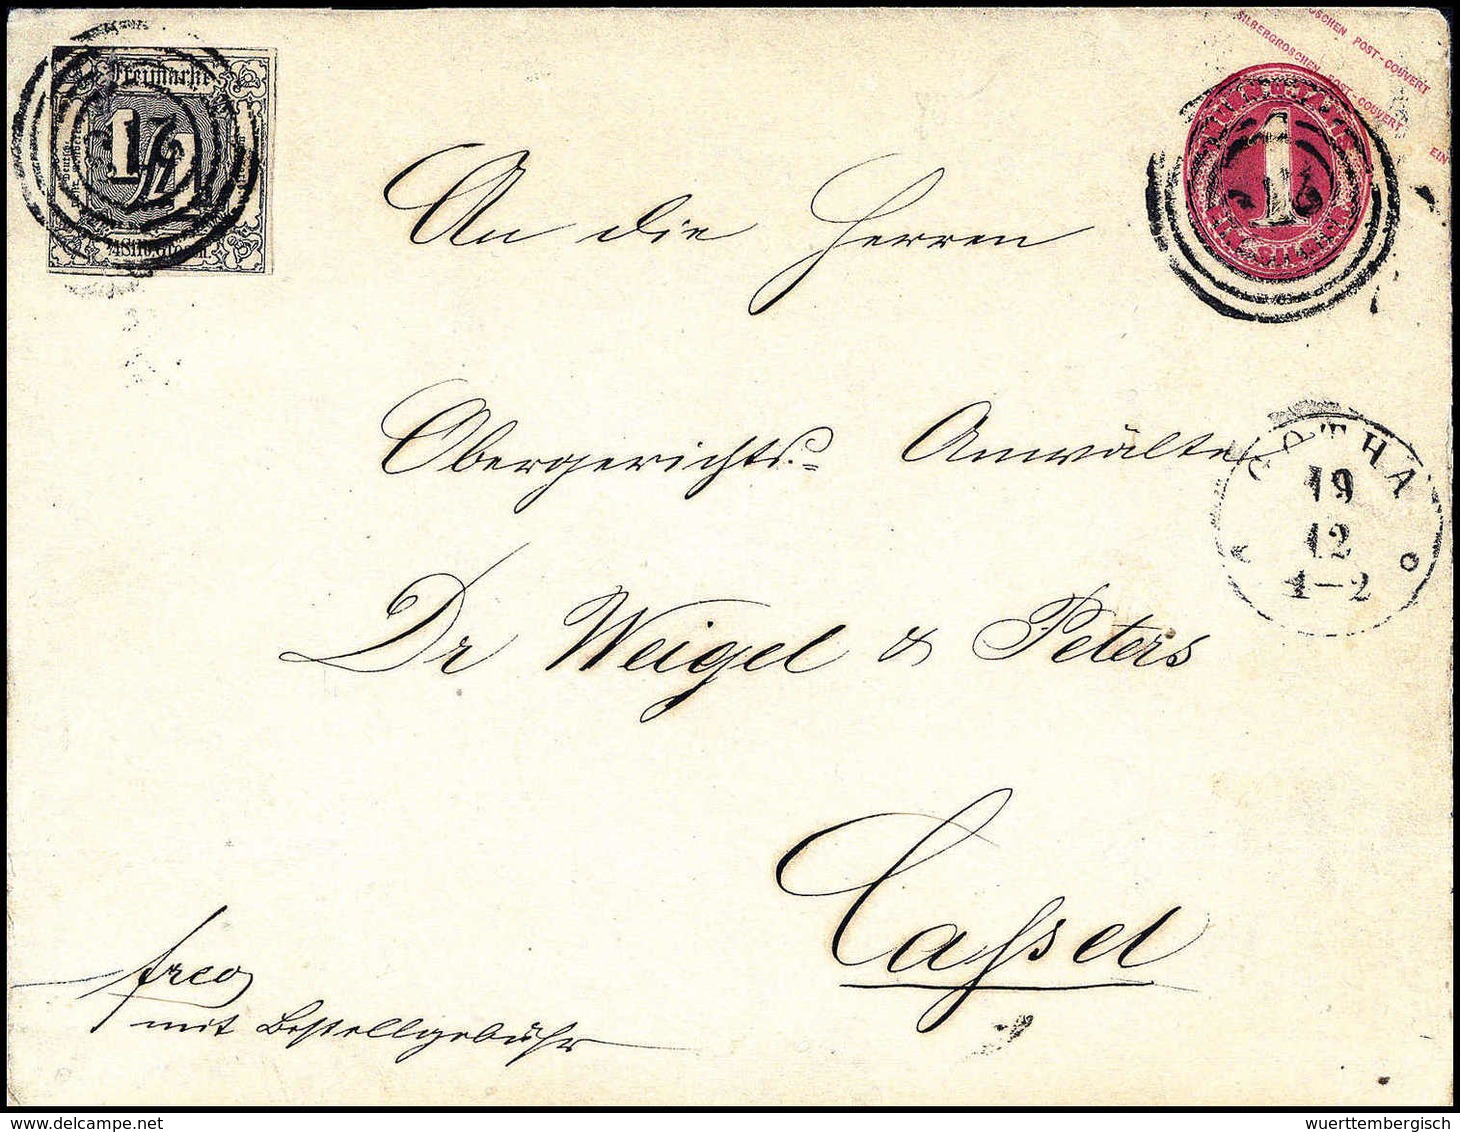 Freimarke
1/4
1/4 Silb. Groschen
SILBERGROSCHEN POST-COUVERT
SILBERGROSCHEN POST-COUVERT
EIN
1
An die Herren
Obergerichts-Anwälte
GOTHA
19
12
1-2
Dr Weigel & Peters
Cassel
frco
mit Bestellgebühr
wuerttembergisch